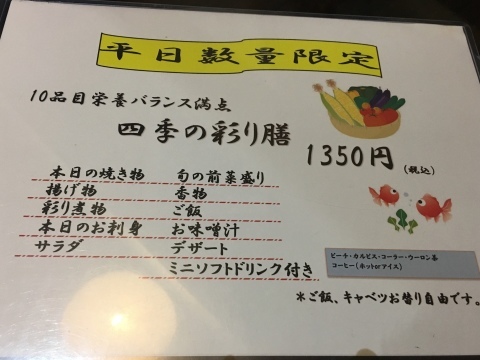 平日数量限定
10品目栄養バランス満点
四季の彩り膳
1350円(税込)
本日の焼き物 旬の前菜盛り
揚げ物 香物
彩り煮物 ご飯
本日のお刺身 お味噌汁
サラダ デザート
ミニソフトドリンク付き
ピーチ・カルピス・コーラー・ウーロン茶
コーヒー(ホットorアイス)
*ご飯、キャベツお替り自由です。